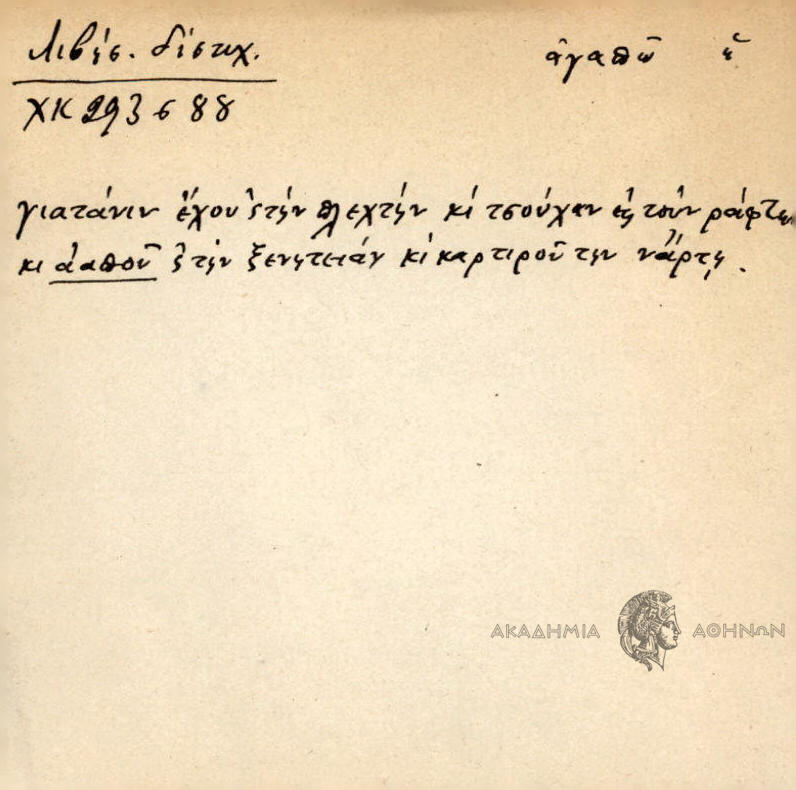 Λιβύσ. δίστιχ.
ἀγαπῶ
ΧΚ 293 σ 88
γιατάνιν ἔχου 'ς τὴν πλεχτὴν κὶ τσούχαν εἰς τοὺν ράφτην
κι ἀαποῦ 'ς τὴν ξενητειὰν κὶ καρτιροῦ τὴν νἄρτῃ.
ΑΚΑΔΗΜΙΑ ΑΘΗΝΩΝ